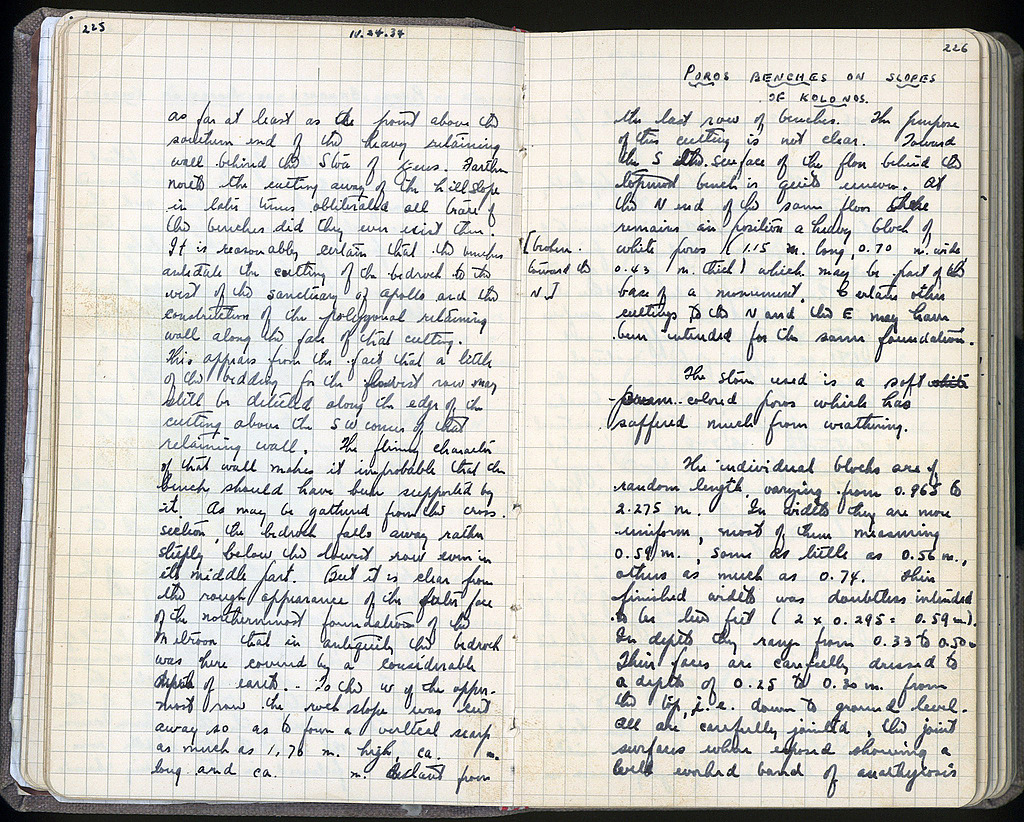 225
IV.24.34
as far at least as the point above the
southern end of the heavy retaining
wall behind the Stoa of Zeus. Farther
north the cutting away of the hillslope
in later times obliterated all trace of
the benches did they ever exist there.
It is reasonably certain that the benches
antedate the cutting of the bedrock to the
west of the sanctuary of Apollo and the
construction of the polygonal retaining
wall along the face of that cutting.
This appears from the fact that a little
of the bedding for the lowest row may
still be detected along the edge of the
cutting above the SW corner of that
retaining wall. The flimsy character
of that wall makes it improbable that the
bench should have been supported by
it. As may be gathered from the cross
section, the bedrock falls away rather
steeply below the lowest row even in
its middle part. But it is clear from
the rough appearance of the outer face
of the northernmost foundation of the
Metroon that in antiquity the bedrock
was here covered by a considerable
depth of earth. - To the W of the upper-
most row the rock slope was cut
away so as to form a vertical scarp
as much as 1.70 m. high, ca. m.
long and ca. m. distant from
226
POROS BENCHES ON SLOPES
OF KOLONOS.
the last row of benches. The purpose
of this cutting is not clear. Toward
the S the surface of the floor behind the
topmost bench is quite uneven. At
the N end of the same floor there
remains in position a heavy block of
white poros (1.15 m. long, 0.70 m. wide
[broken
toward the
N]
0.43 m. thick) which may be part of the
base of a monument. Certain other
cuttings to the N and the E may have
been intended for the same foundation.
The stone used is a soft white
cream-colored poros which has
suffered much from weathering.
The individual blocks are of
random length, varying from 0.965 to
2.275 m. In width they are more
uniform, most of them measuring
0.59 m., some as little as 0.56 m.,
others as much as 0.74. Their
finished width was doubtless intended
to be two feet (2 x 0.295 = 0.59 m).
In depth they range from 0.33 to 0.50
Their faces are carefully dressed to
a depth of 0.25 to 0.30 m. from
the top, i.e. down to ground level.
All are carefully jointed, the joint
surfaces where exposed showing a
well worked band of anathyrosis